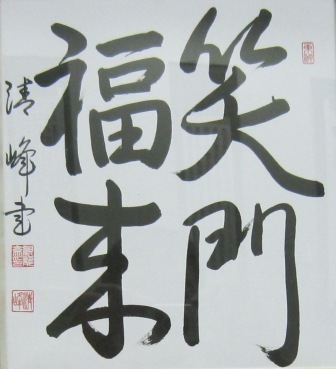 笑門
福来
清峰書